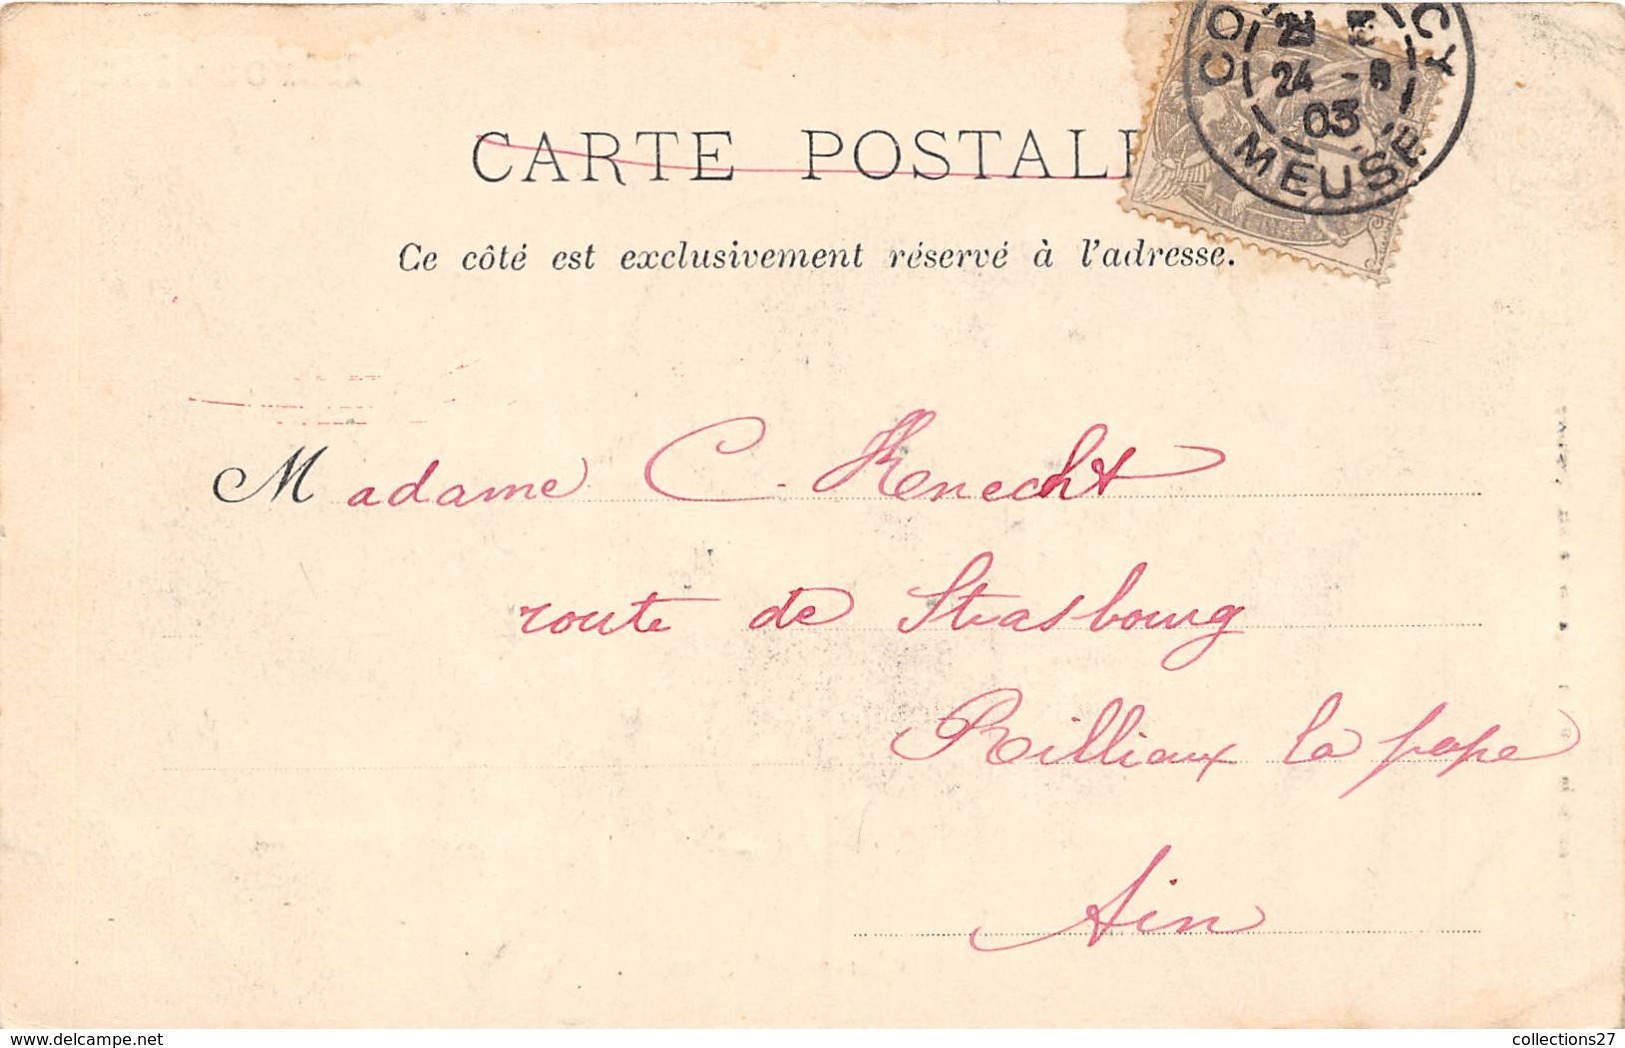 CARTE POSTALE
Ce côté est exclusivement réservé à l'adresse.
24 -8
03
MEUSE
Madame C. Knecht
route de Strasbourg
Rillieux la pape
Ain
www.delcampe.net
collections27